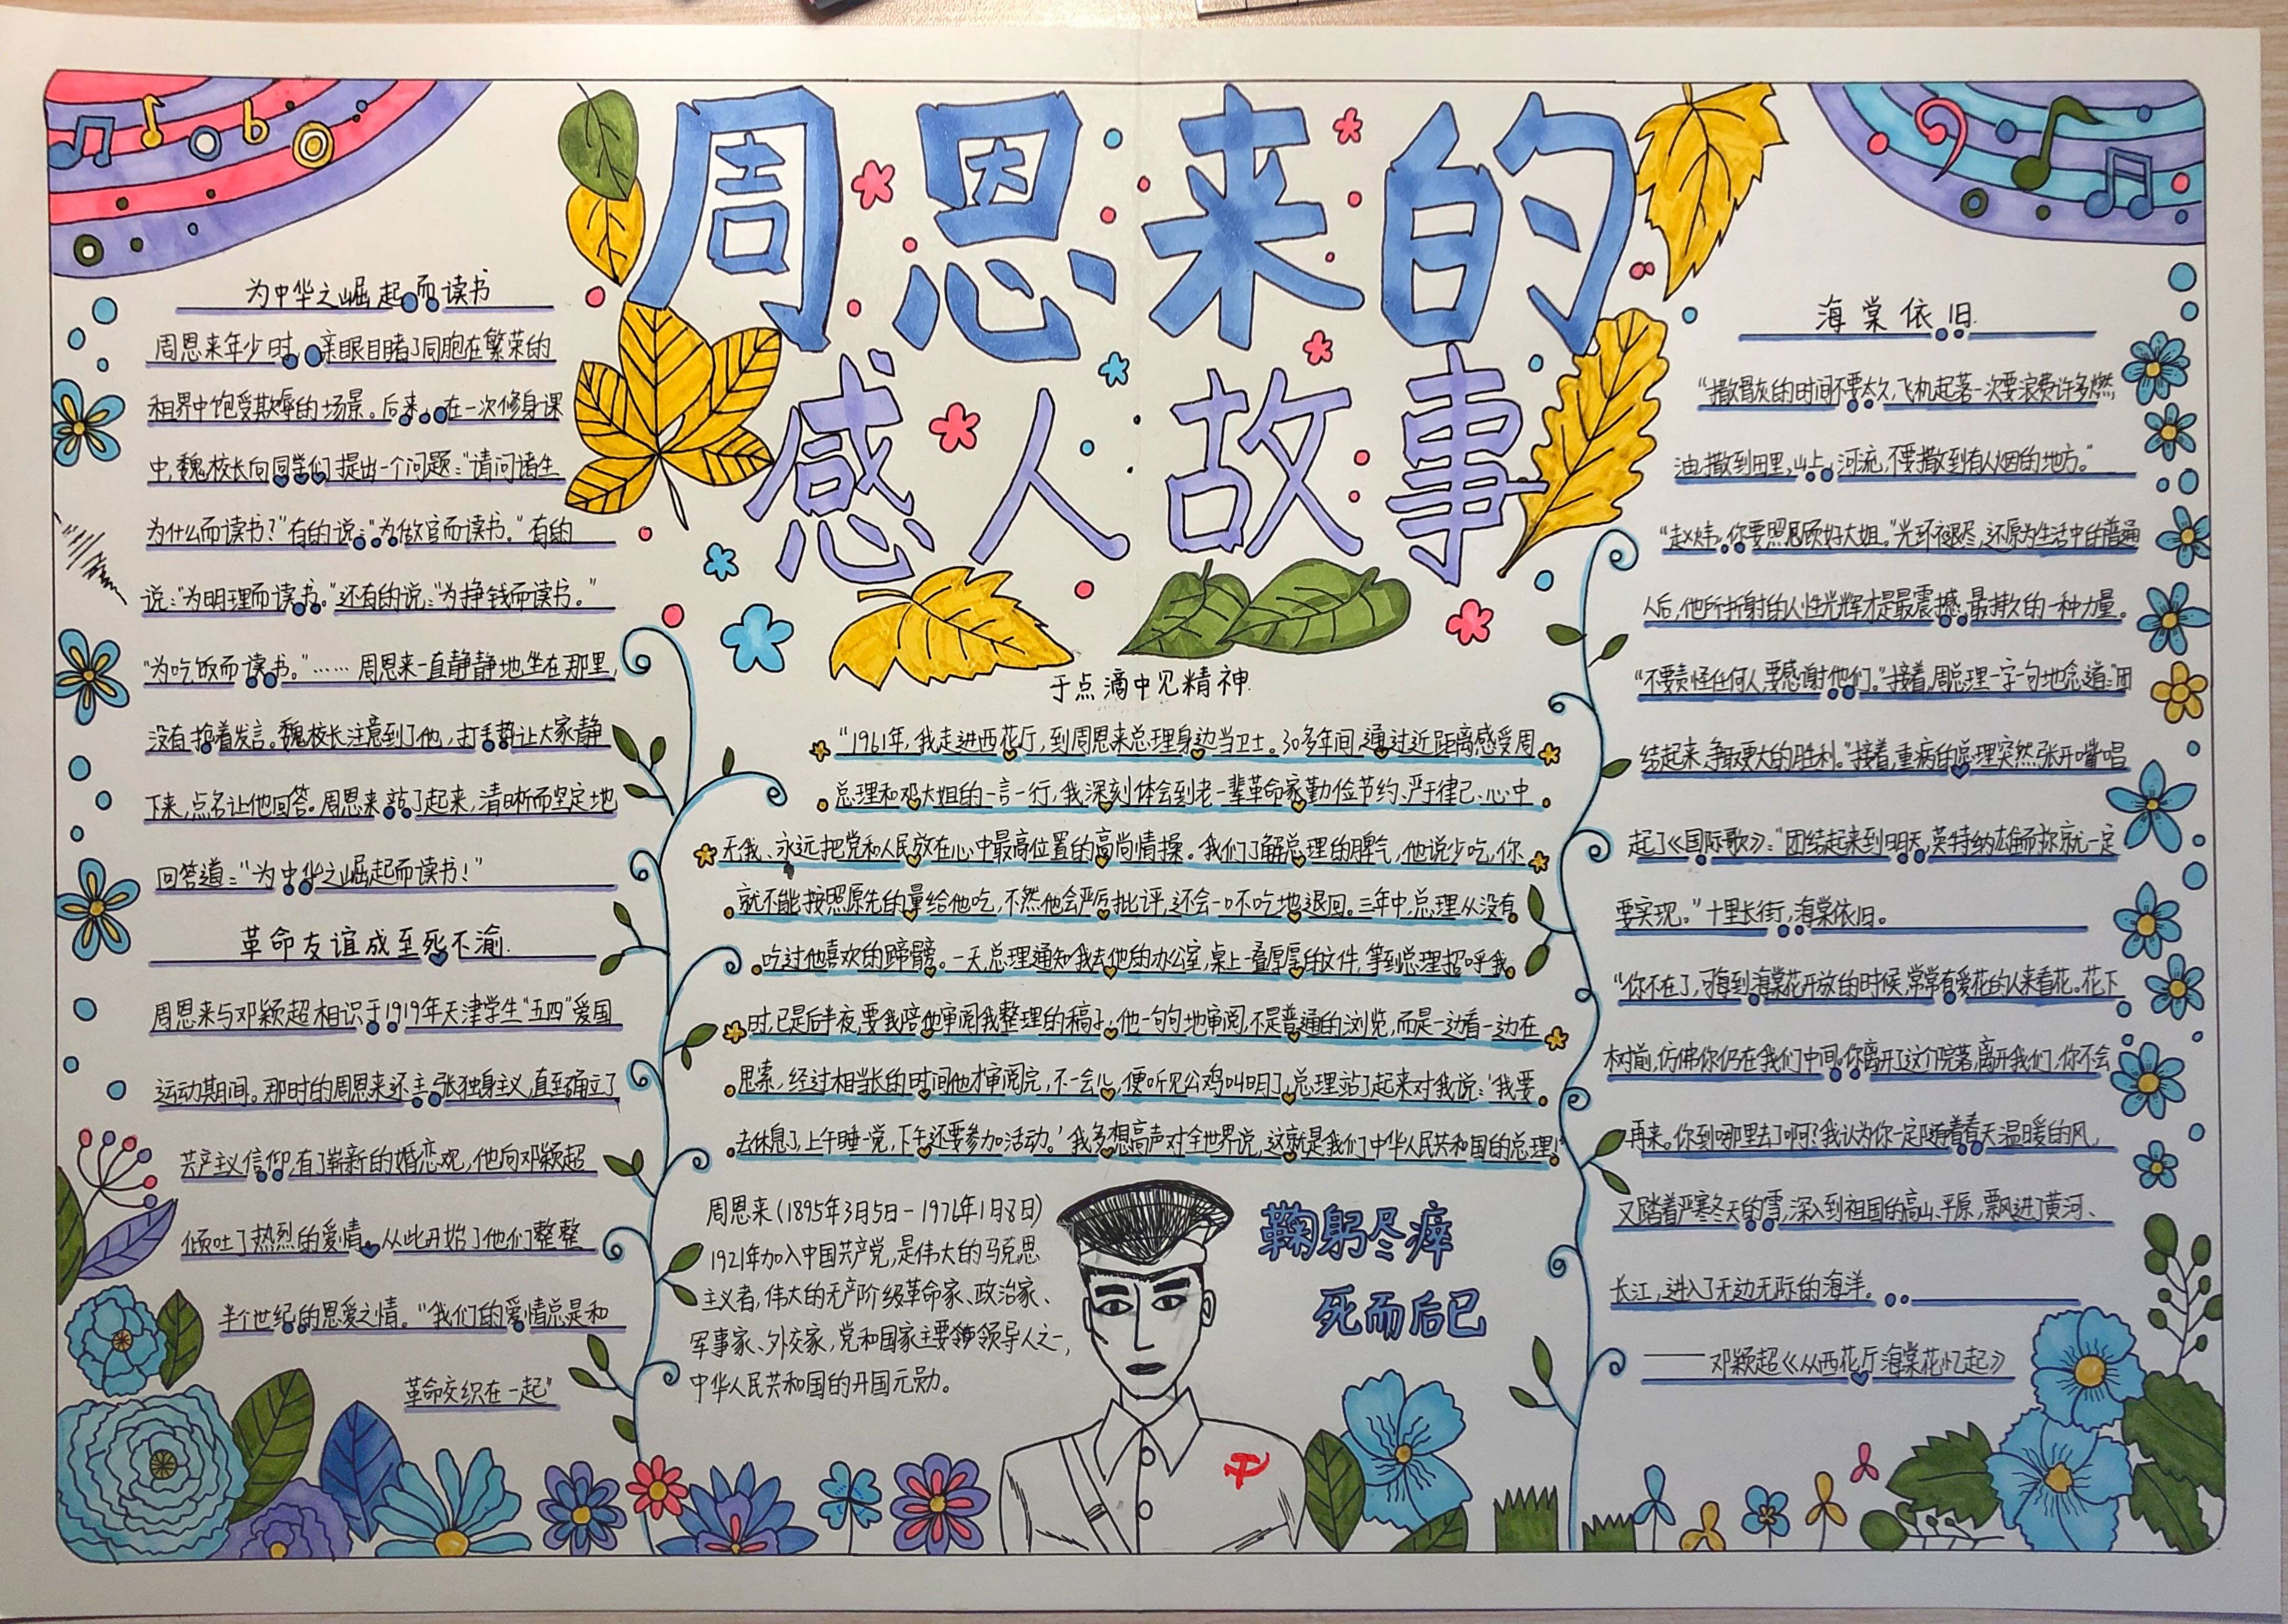 周恩来的
感人故事
为中华之崛起而读书
周恩来年少时,亲眼目睹了同胞在繁荣的
租界中饱受欺辱的场景。后来,在一次修身课
中,魏校长向同学们提出一个问题:“请问诸生
为什么而读书?”有的说:“为做官而读书。”有的
说:“为明理而读书。”还有的说:“为挣钱而读书。”
“为吃饭而读书。”……周恩来一直静静地坐在那里,
没有抢着发言。魏校长注意到了他,打手势让大家静
下来,点名让他回答。周恩来站了起来,清晰而坚定地
回答道:“为中华之崛起而读书!”
革命友谊成至死不渝.
周恩来与邓颖超相识于1919年天津学生“五四”爱国
运动期间。那时的周恩来还主张独身主义,直至确立了
共产主义信仰,有了崭新的婚恋观,他向邓颖超
倾吐了热烈的爱情,从此开始了他们整整
半个世纪的恩爱之情。“我们的爱情总是和
革命交织在一起”
于点滴中见精神.
“1961年,我走进西花厅,到周恩来总理身边当卫士。30多年间,通过近距离感受周
总理和邓大姐的一言一行,我深刻体会到老一辈革命家勤俭节约、严于律己、心中
无我、永远把党和人民放在心中最高位置的高尚情操。我们了解总理的脾气,他说少吃,你
就不能按照原先的量给他吃,不然他会严厉批评,还会一口不吃地退回。三年中,总理从没有
吃过他喜欢的蹄髈。一天,总理通知我去他的办公室,桌上一叠厚厚的文件,等到总理招呼我
时,已是后半夜,要我陪他审阅我整理的稿子,他一句句地审阅,不是普通的浏览,而是一边看一边在
思索,经过相当长的时间他才审阅完,不一会儿,便听见公鸡叫明了,总理站了起来对我说:‘我要
去休息了,上午睡一觉,下午还要参加活动。’我多想高声对全世界说,这就是我们中华人民共和国的总理!
周恩来(1895年3月5日-1976年1月8日)
1921年加入中国共产党,是伟大的马克思
主义者,伟大的无产阶级革命家、政治家、
军事家、外交家,党和国家主要领导人之一,
中华人民共和国的开国元勋。
鞠躬尽瘁
死而后已
海棠依旧.
“撒骨灰的时间不要太久,飞机起落一次要浪费许多燃
油,撒到田里,山上,河流,不要撒到有人烟的地方。”
“赵炜,你要照顾好大姐。”光环褪尽,还原为生活中的普通
人后,他所折射的人性光辉才是最震撼,最持久的一种力量。
“不要责怪任何人,要感谢他们。”接着,周总理一字一句地念道:“团
结起来,争取更大的胜利。”接着,重病的总理突然张开嘴唱
起了《国际歌》:“团结起来到明天,英特纳雄耐尔就一定
要实现。”十里长街,海棠依旧。
“你不在了,可每到海棠花开放的时候,常常有爱花的人来看花。花下
树前,仿佛你仍在我们中间。你离开了这个院落,离开我们,你不会
再来。你到哪里去了啊?我认为你一定随着春天温暖的风,
又踏着严寒冬天的雪,深入到祖国的高山、平原,飘进了黄河、
长江,进入了无边无际的海洋。
——邓颖超《从西花厅海棠花忆起》